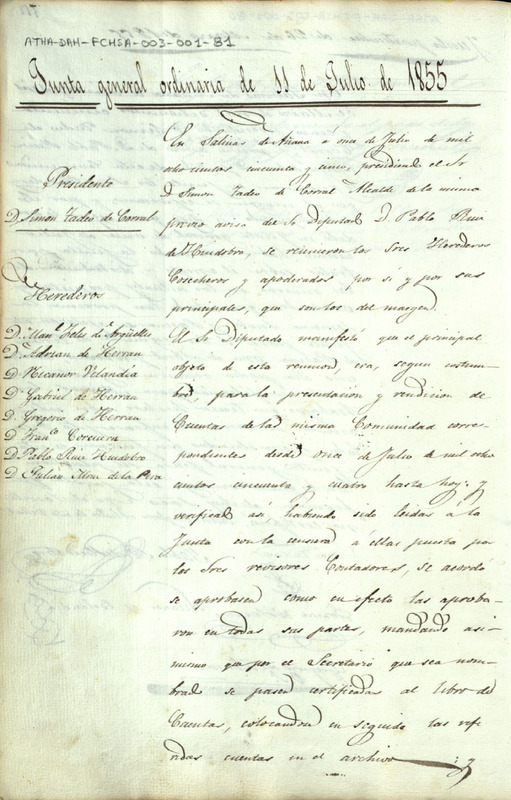 ATHA-DAH-FCHSA-003-001-81
Junta general ordinaria de 11 de Julio de 1855
Presidente
D. Simon Tadeo de Corral
Herederos
D. Man.l Felis de Argüelles
D. Adrian de Herran
D. Nicanor Velandia
D. Gabriel de Herran
D. Gregorio de Herran
D. Fran.co Corcuera
D. Pablo Ruiz Huidobro
D. Julian de la Pera
En Salinas de Añana á once de Julio de mil
ocho cientos cincuenta y cinco, presidiendo el Sr
D. Simon Tadeo de Corral Alcalde de la misma
previo aviso del Sr Diputado D. Pablo Ruiz
de Huidobro, se reunieron los Sres Herederos
Cosecheros y apoderados por si y por sus
principales, que son los del margen.
El Sr Diputado manifestó que el principal
objeto de esta reunion, era, segun costum-
bre, para la presentacion y rendicion de
Cuentas de la misma Comunidad corres-
pondientes desde once de Julio de mil ocho
cientos cincuenta y cuatro hasta hoy: y
verificado asi habiendo sido leidas á la
Junta con la censura á ellas puesta por
los Sres revisores Contadores, se acordó
se aprobasen como en efecto las aproba-
ron en todas sus partes, mandando asi-
mismo que por el Secretario que sea nom-
brado se pasen certificadas al libro de
Cuentas, colocandose en seguida las refe-
ridas cuentas en el archivo y